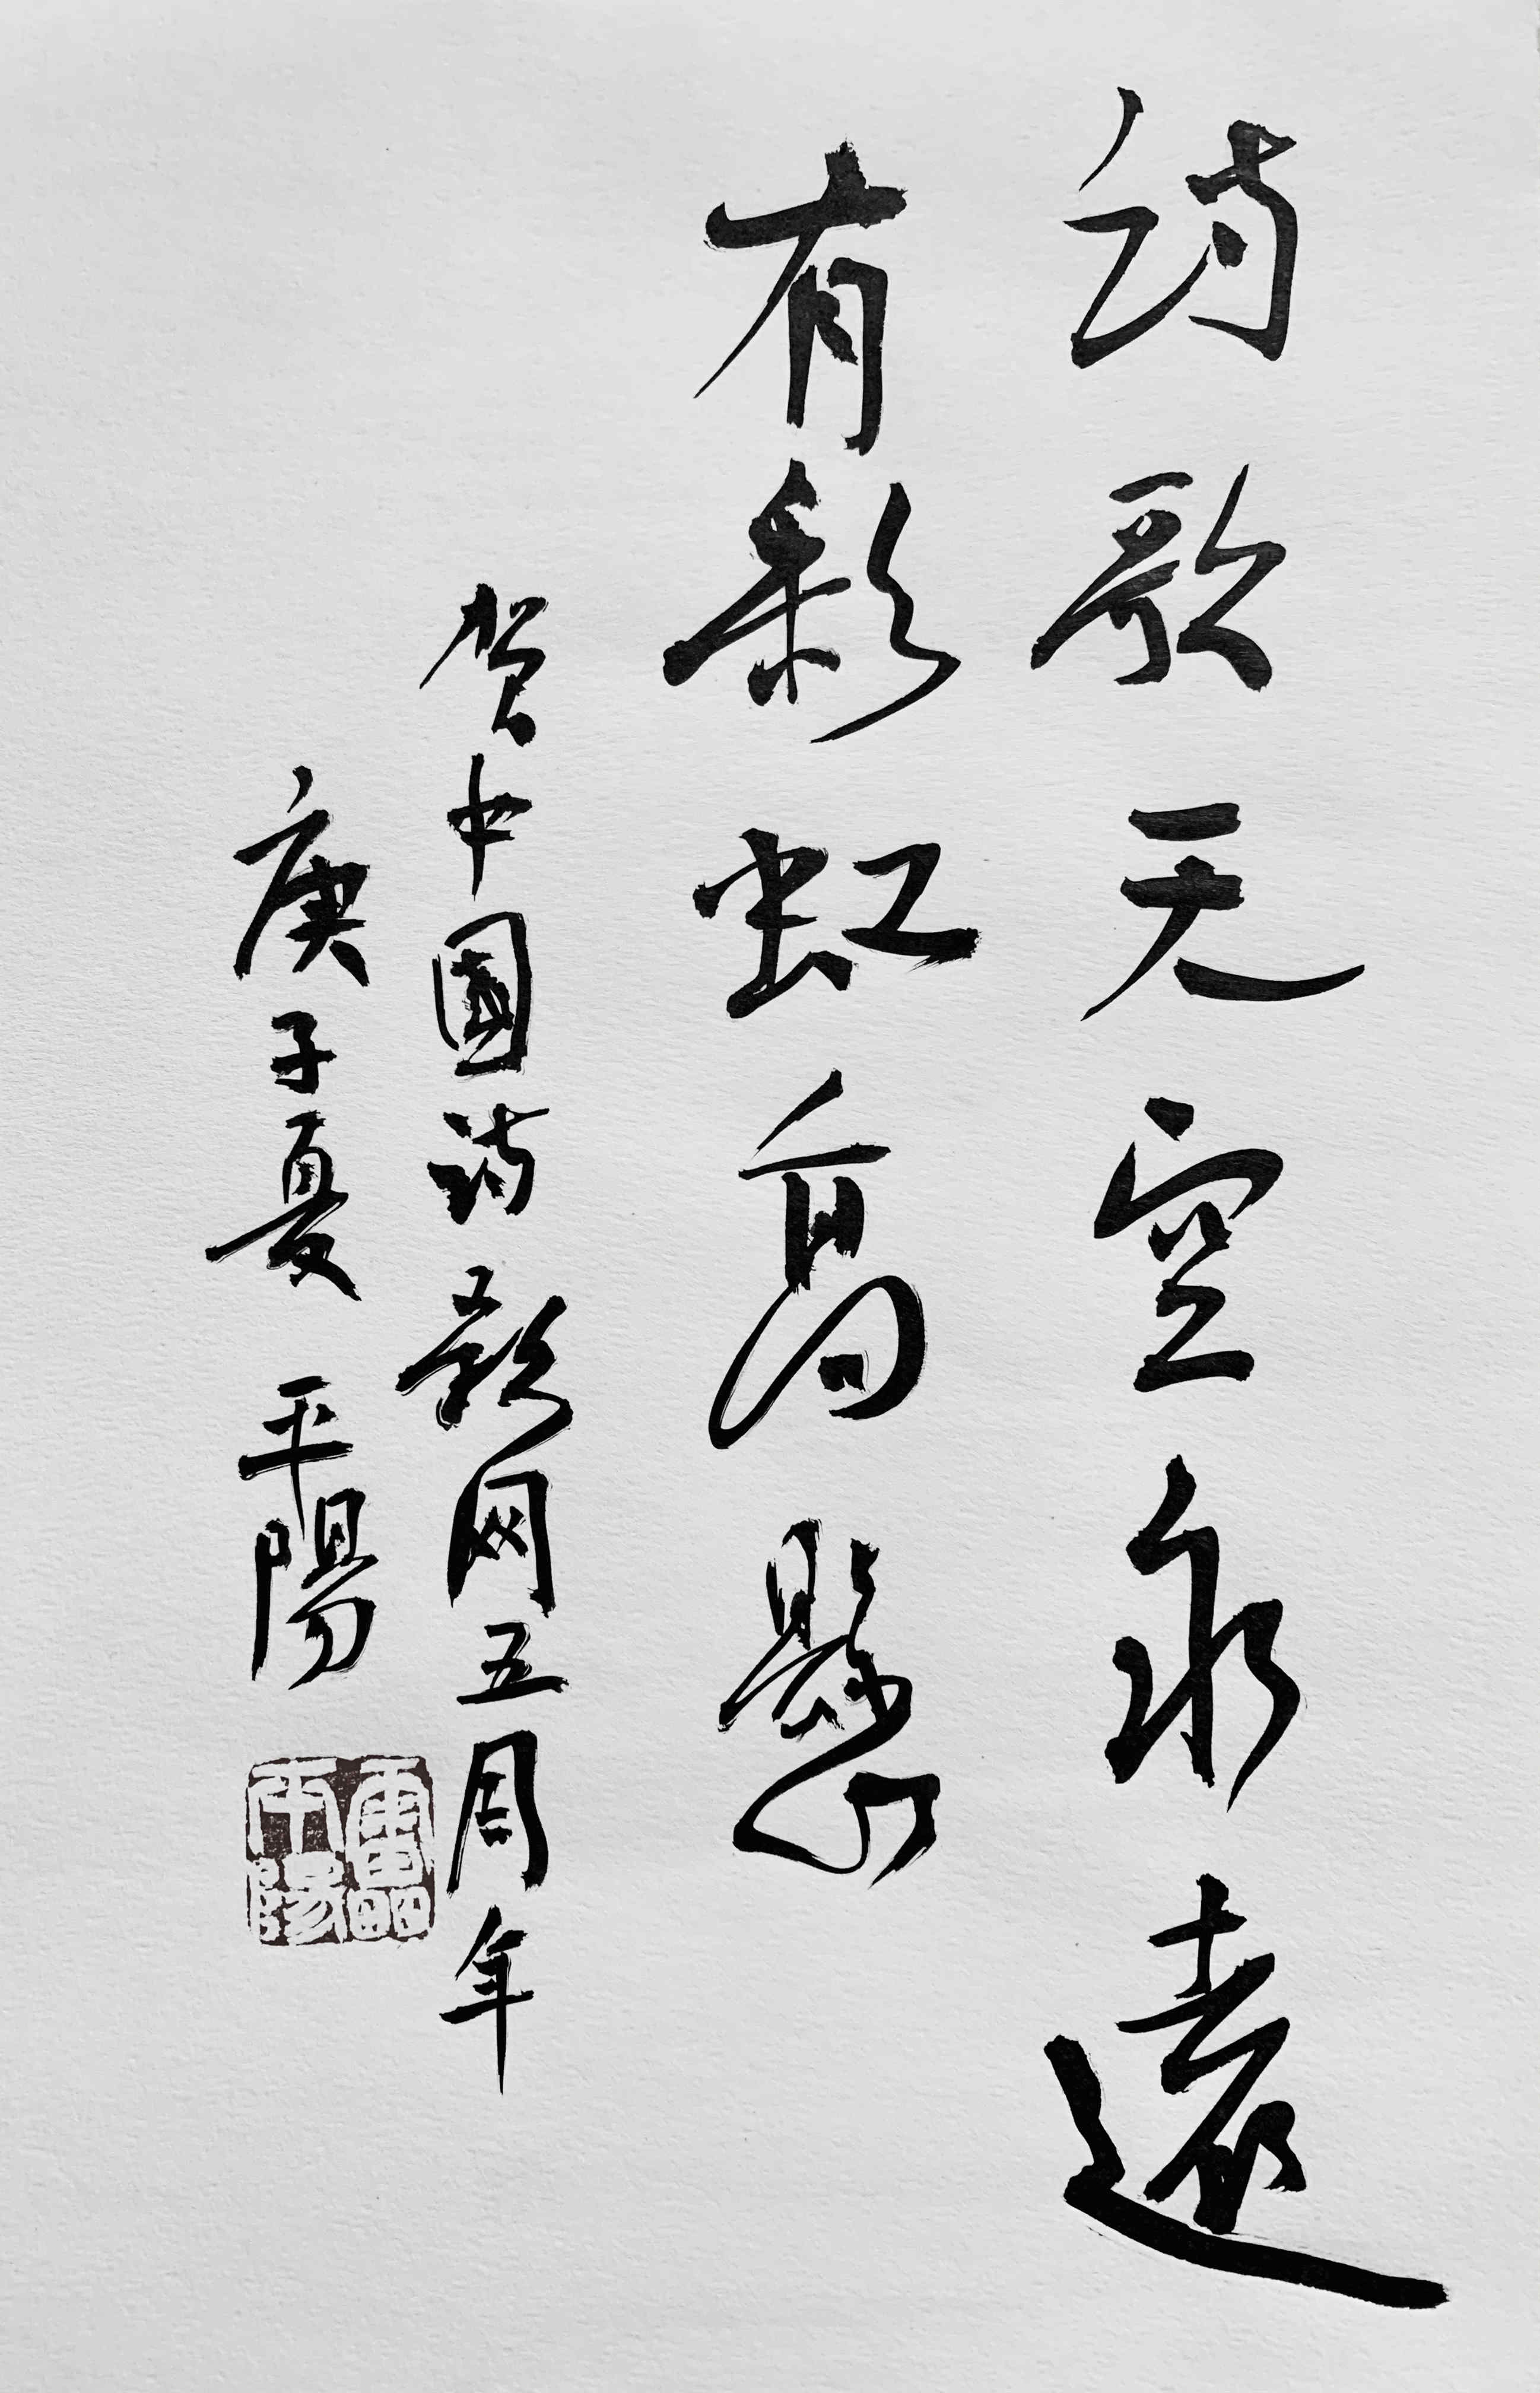 诗歌天空永遠
有彩虹高懸
贺中國诗歌网五周年
庚子夏 平陽
雷平陽